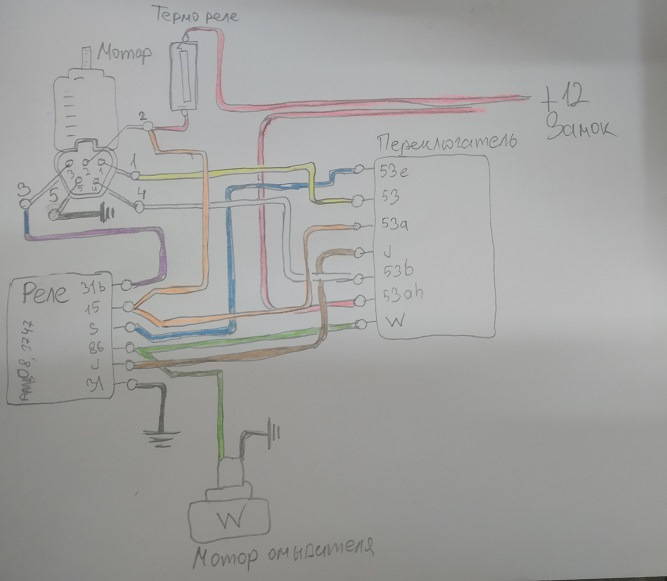 Термо реле
Мотор
+12
Замок
Переключатель
2
1
3
5
4
3
2
1
5
4
53e
53
53a
J
53b
53ah
W
Реле
31b
15
S
86
J
31
W
Мотор омывателя